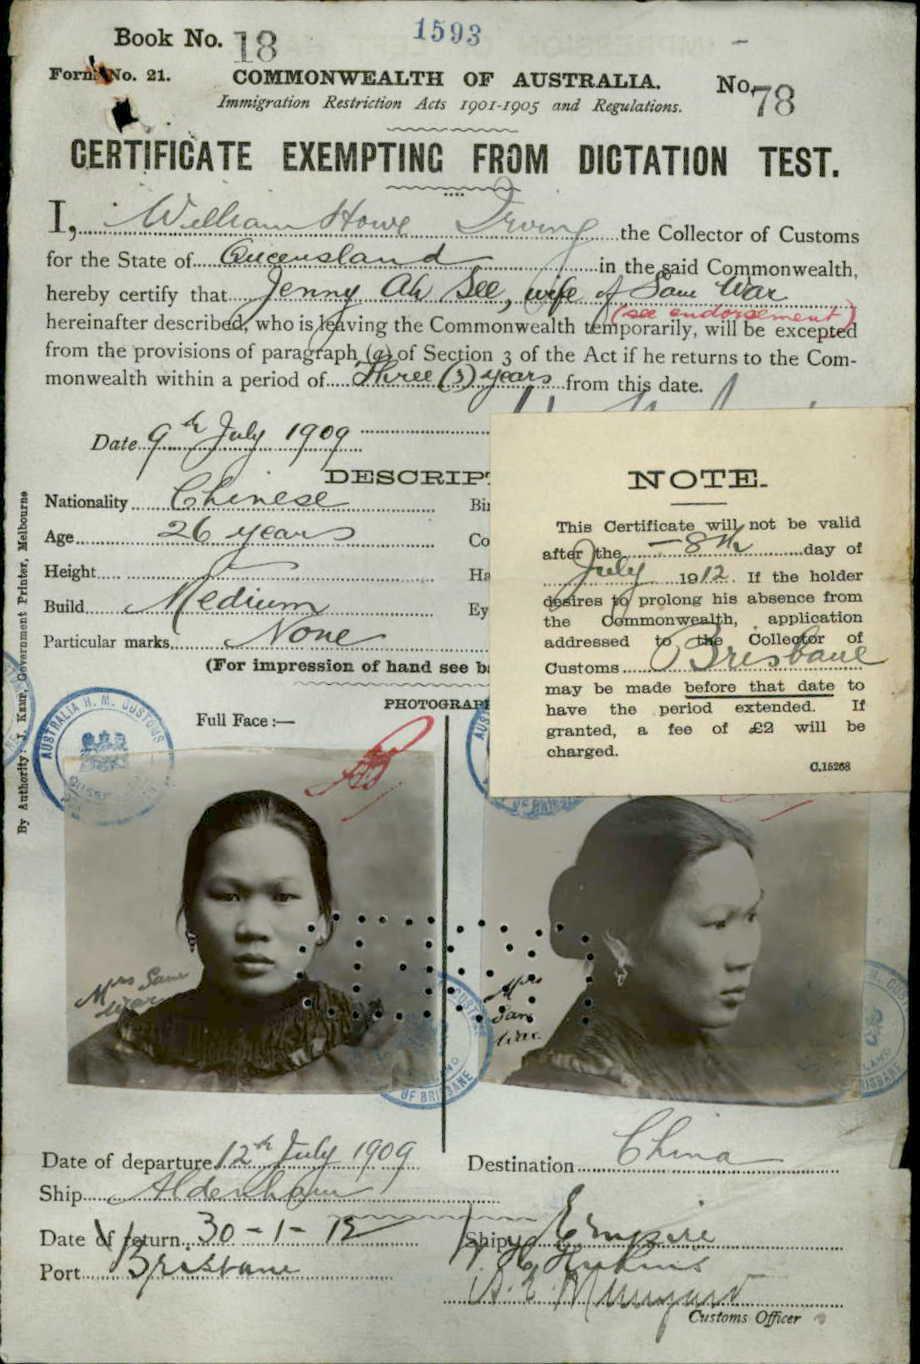 1593
Book No. 18
Form No. 21.
COMMONWEALTH OF AUSTRALIA.
No. 78
Immigration Restriction Acts 1901-1905 and Regulations.
CERTIFICATE EXEMPTING FROM DICTATION TEST.
I, William Howe Irving the Collector of Customs
for the State of Queensland in the said Commonwealth,
hereby certify that Jenny Ah See, wife of Sam War
(see endorsement)
hereinafter described, who is leaving the Commonwealth temporarily, will be excepted
from the provisions of paragraph (a) of Section 3 of the Act if he returns to the Com-
monwealth within a period of Three (3) years from this date.
Date 9th July 1909
DESCRIPT
Nationality Chinese
Bir
Age 26 years
Co
Height
Ha
Build Medium
Ey
Particular marks None
(For impression of hand see ba
PHOTOGRAPH
Full Face :—
NOTE.
This Certificate will not be valid
after the 8th day of
July 1912. If the holder
desires to prolong his absence from
the Commonwealth, application
addressed to the Collector of
Customs Brisbane
may be made before that date to
have the period extended. If
granted, a fee of £2 will be
charged.
C.15268
By Authority: J. Kemp, Government Printer, Melbourne
AUSTRALIA H. M. CUSTOMS
OF BRISBANE
Mrs Sam
War
Mrs
Sam
War
OF BRISBANE
BRISBANE
Date of departure 12th July 1909
Destination China
Ship Aldenham
Date of return 30-1-12
Ship Empire
Port Brisbane
Customs Officer